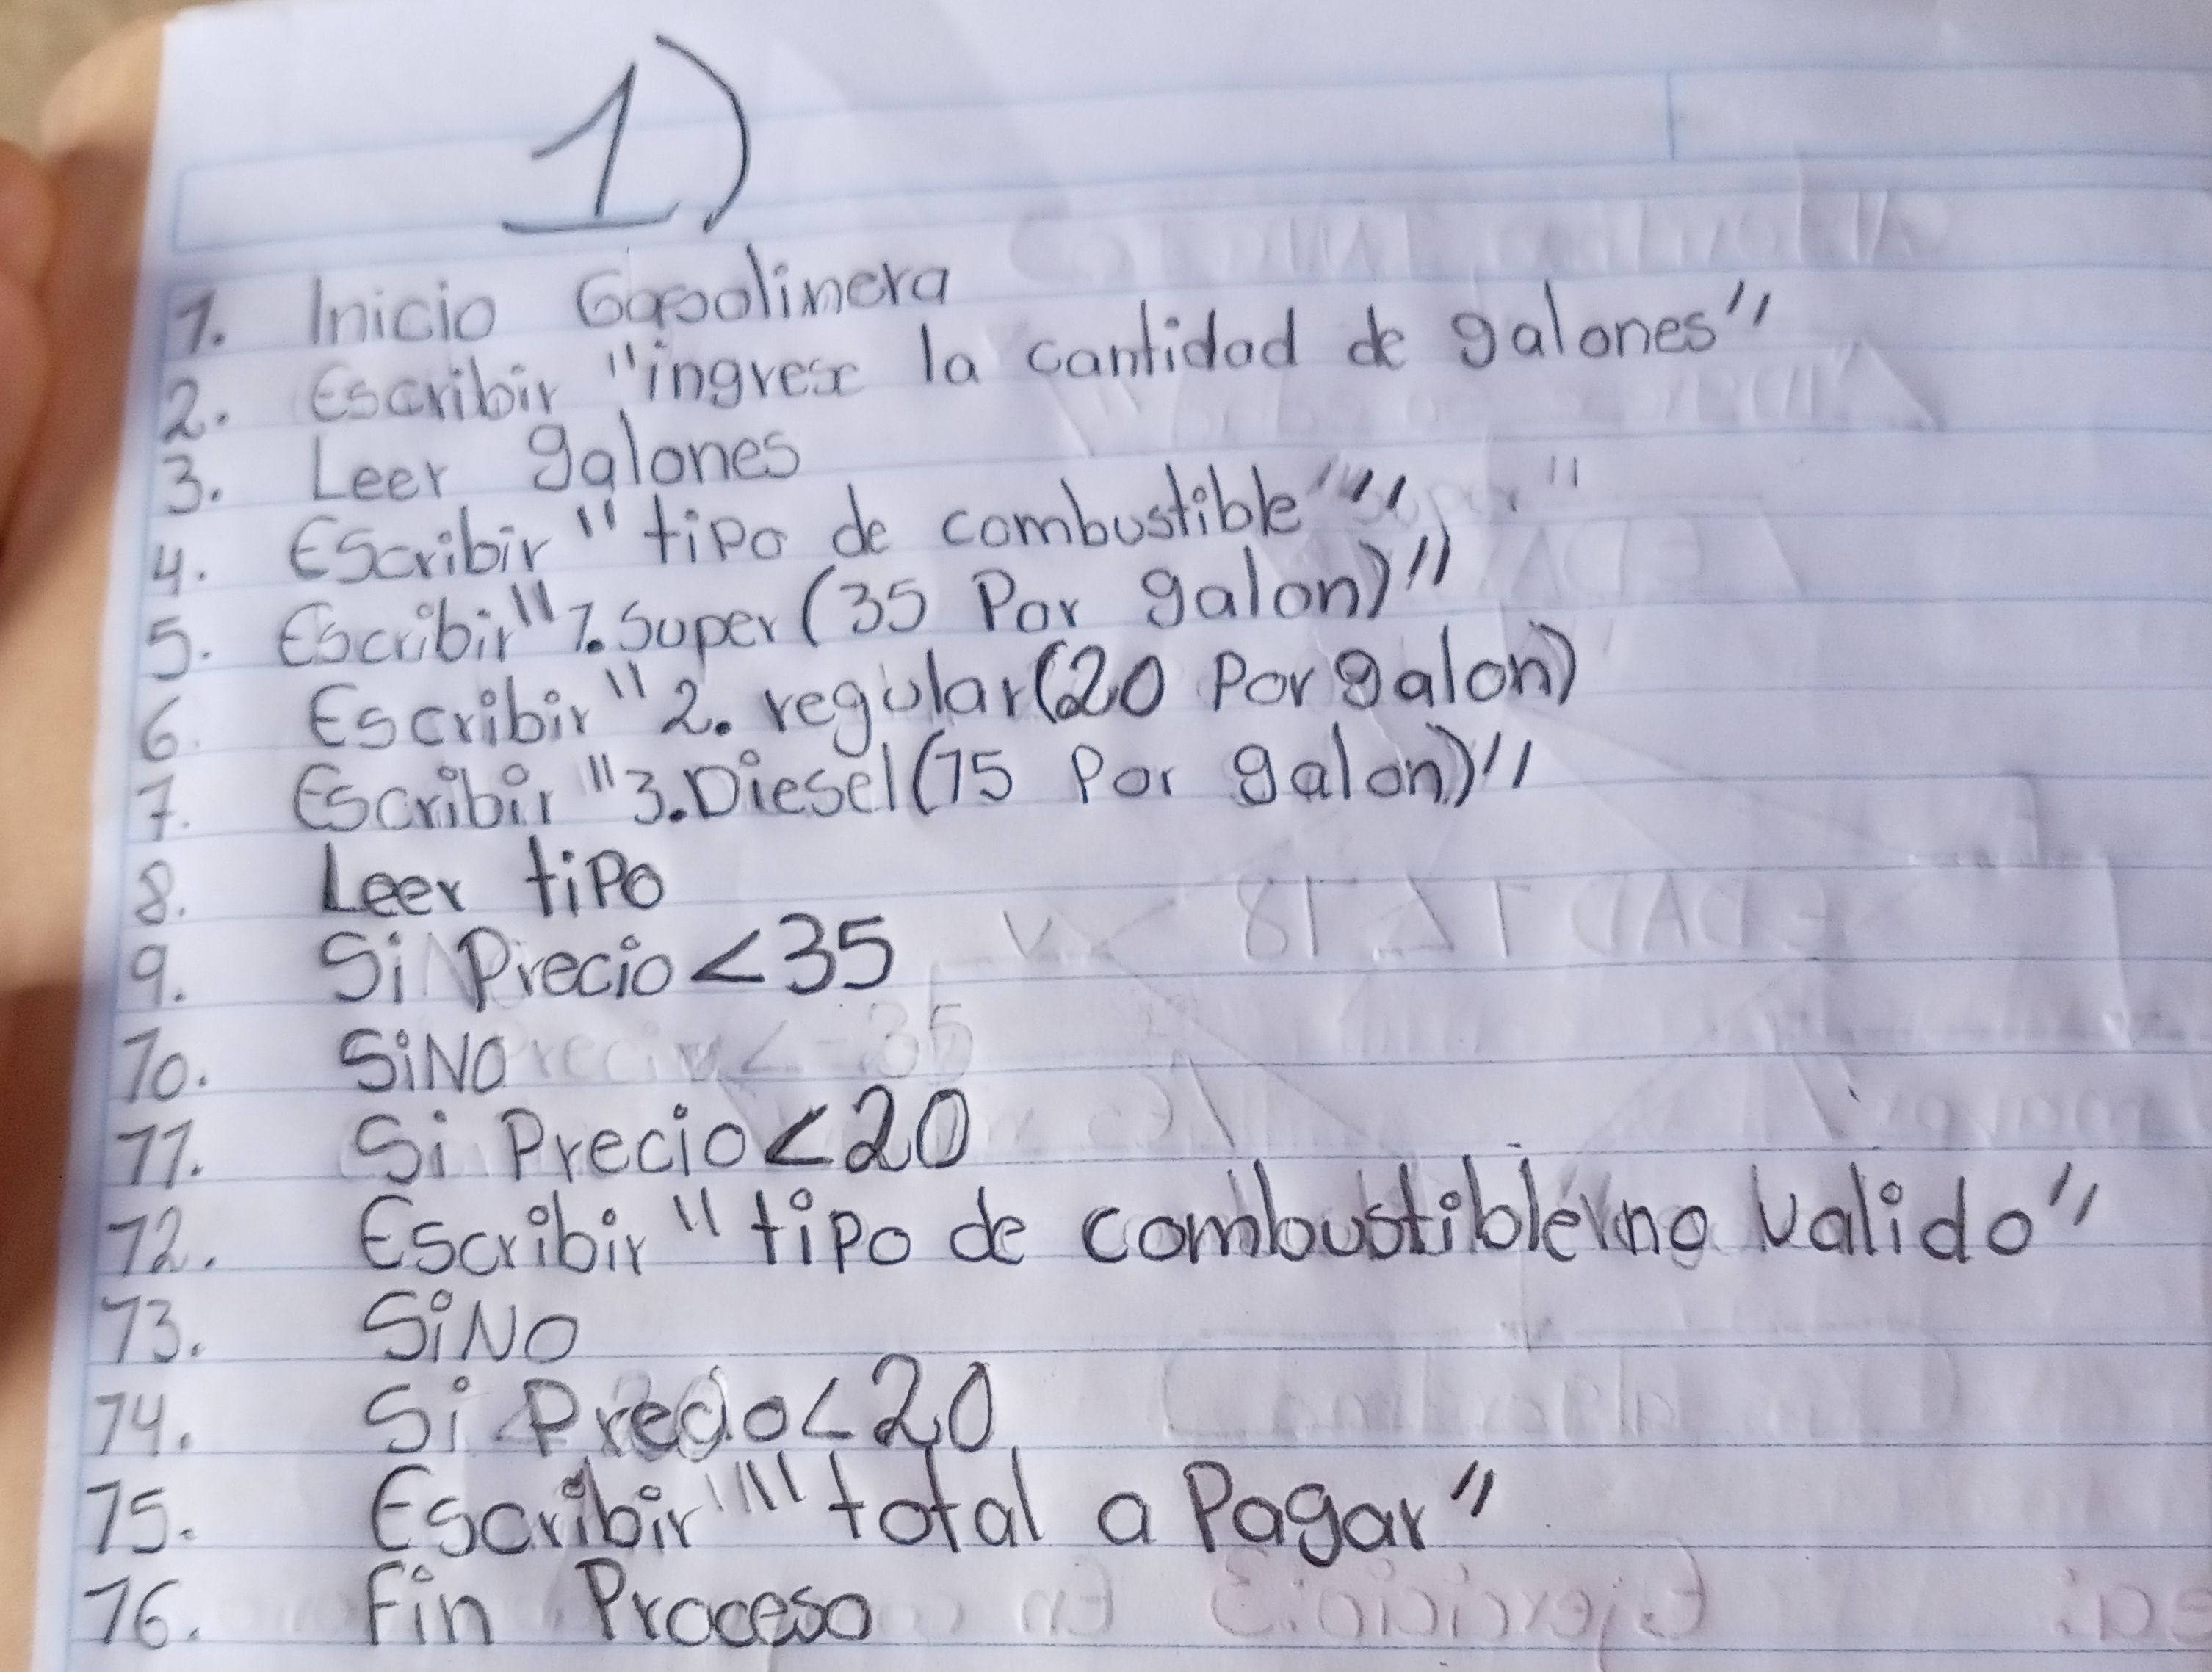 1)
1. Inicio Gasolinera
2. Escribir "ingrese la cantidad de galones"
3. Leer galones
4. Escribir "tipo de combustible"
5. Escribir "1. Super (35 Por galon)"
6. Escribir "2. regular (20 Por galon)
7. Escribir "3. Diesel (15 Por galon)"
8. Leer tipo
9. Si Precio < 35
10. SiNO
11. Si Precio < 20
12. Escribir "tipo de combustible no valido"
13. SiNO
14. Si Precio < 20
15. Escribir "total a Pagar"
16. Fin Proceso